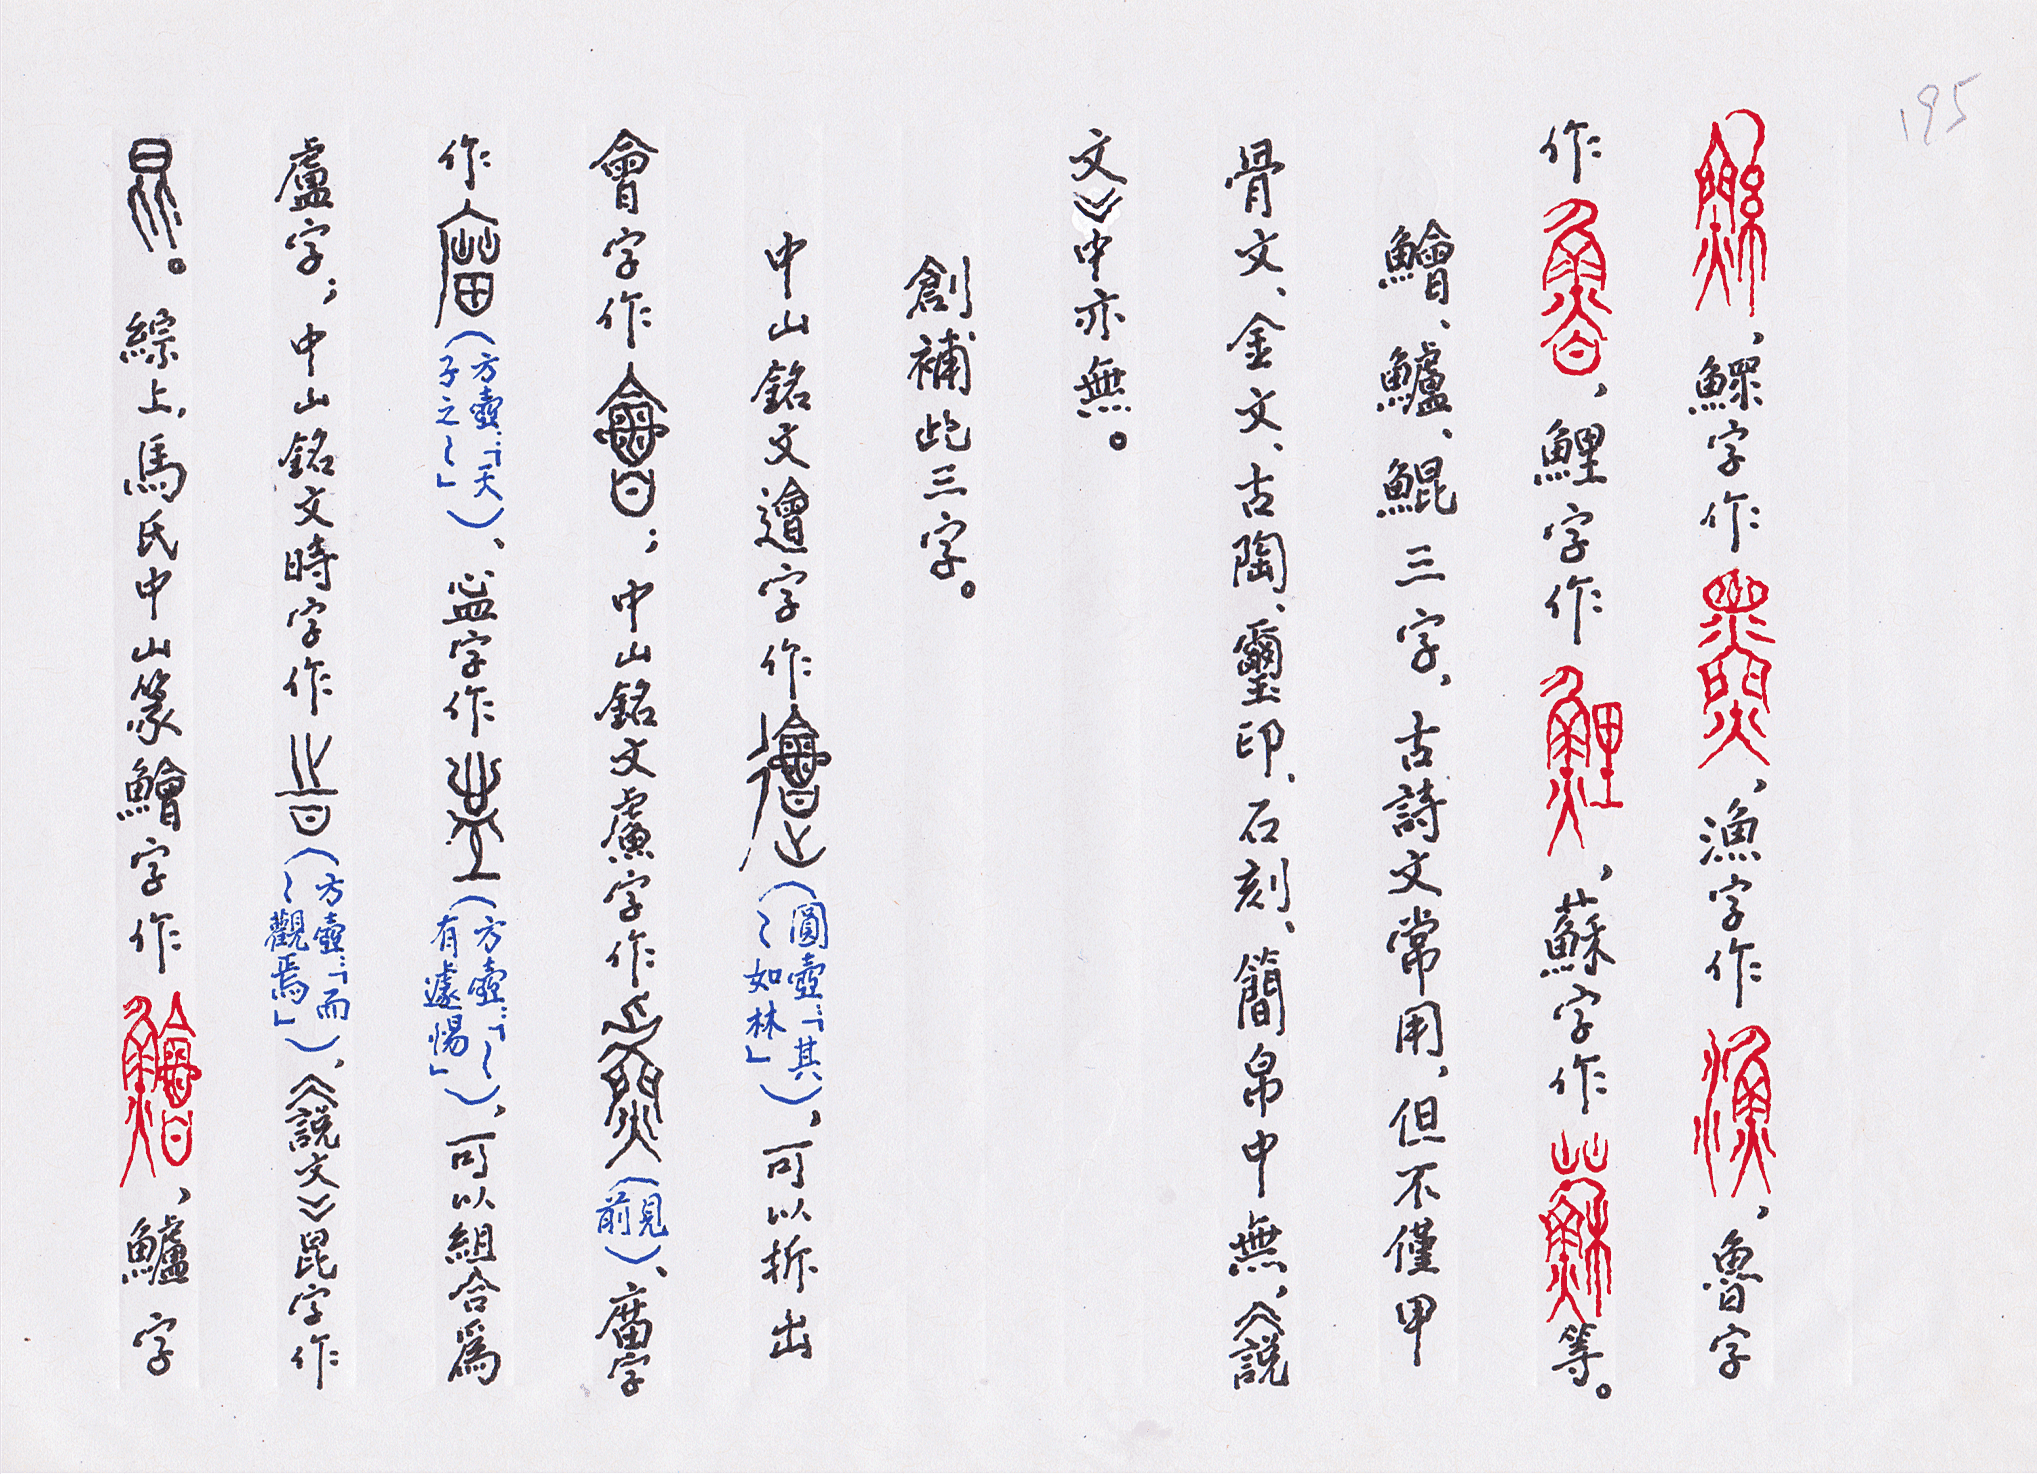 195
，鰥字作，漁字作，魯字
作，鯉字作，蘇字作等。
鱠、鱸、鯤三字，古詩文常用，但不僅甲
骨文、金文、古陶、璽印、石刻、簡帛中無，《說
文》中亦無。
創補此三字。
中山銘文遭字作（圓壺：「其〻如林」），可以拆出
會字作；中山銘文字作（見前）、字
作（方壺：「天子之〻」）、字作（方壺：「〻有遽惕」），可以組合爲
盧字；中山銘文時字作（方壺：「而〻觀焉」），《說文》昆字作
。綜上，馬氏中山篆鱠字作，鱸字